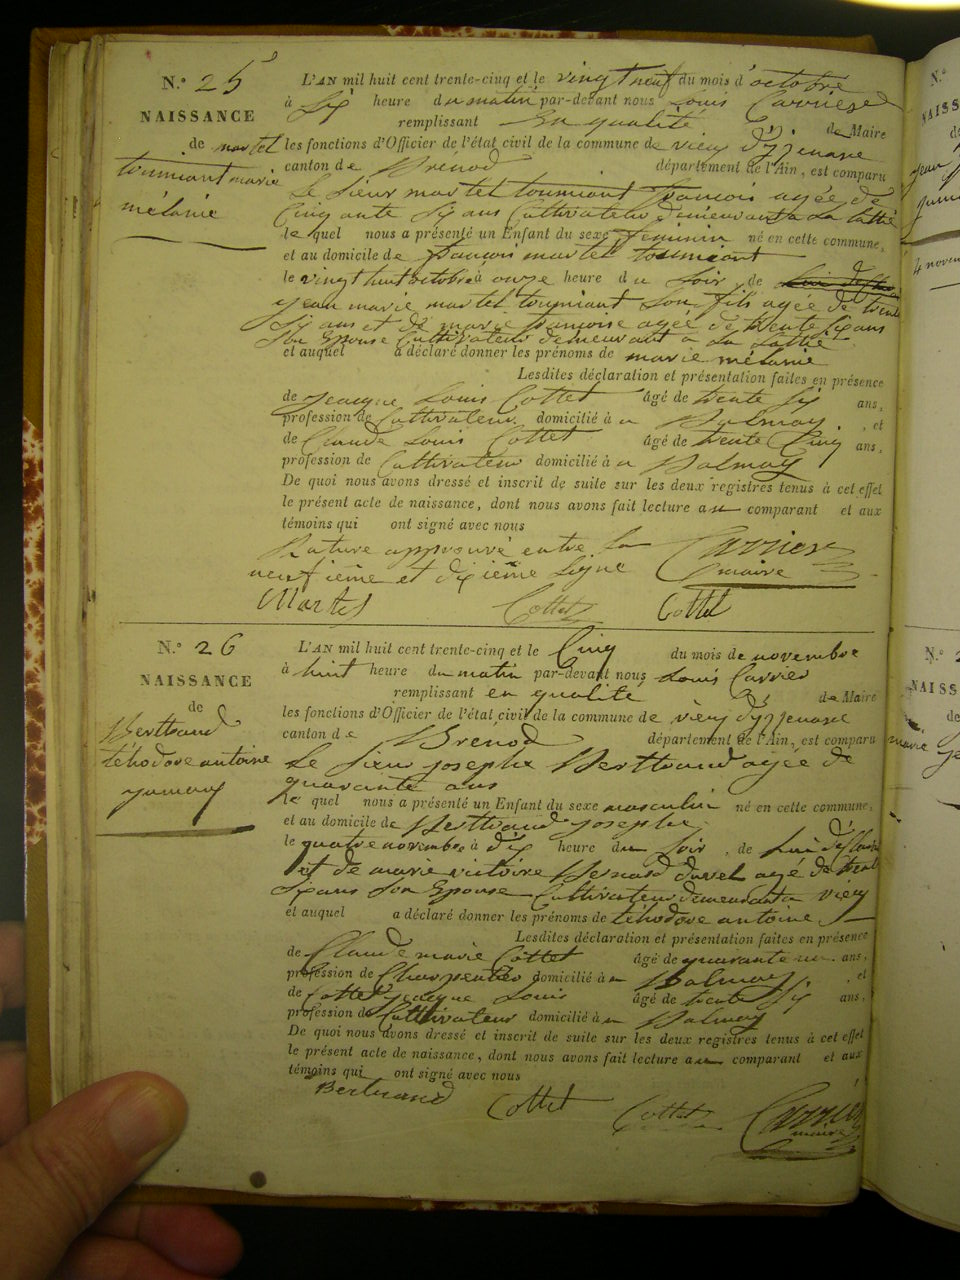 N.º 25
NAISSANCE
de martel
toumiant marie
mélanie
L'AN mil huit cent trente-cinq et le vingt neuf du mois d'octobre
à Six heure du matin par-devant nous Louis Carrier
remplissant en qualité de Maire
les fonctions d'Officier de l'état civil de la commune de vieu d'izenave
canton de Brénod département de l'Ain, est comparu
le Sieur martel toumiant françois agée de
Cinquante Six ans Cultivateur demeurant a La
le quel nous a présenté un Enfant du sexe feminin né en cette commune,
et au domicile de françois martel toumiant
le vingt huit octobre à onze heure du Soir, de
jean marie martel toumiant son fils agée de trente
Six ans et de marie françoise agée de trente Six ans
Son Epouse Cultivateur demeurant a La
et auquel a déclaré donner les prénoms de marie mélanie
Lesdites déclaration et présentation faites en présence
de Jeacque Louis Cottet âgé de trente Six ans,
profession de Cultivateur domicilié à Balmay, et
de Claude Louis Cottet âgé de trente Cinq ans,
profession de Cultivateur domicilié à Balmay
De quoi nous avons dressé et inscrit de suite sur les deux registres tenus à cet effet
le présent acte de naissance, dont nous avons fait lecture au comparant et aux
témoins qui ont signé avec nous
Rature approuvé entre la
neufième et dixième Ligne
Carrier
maire
Martel Cottet Cottet
N.º 26
NAISSANCE
de
Berttrand
téhodore antoine
L'AN mil huit cent trente-cinq et le Cinq du mois de novembre
à huit heure du matin par-devant nous Louis Carrier
remplissant en qualité de Maire
les fonctions d'Officier de l'état civil de la commune de vieu d'izenave
canton de Brénod département de l'Ain, est comparu
Le Sieur josephe Berttrand agée de
quarante ans
le quel nous a présenté un Enfant du sexe masculin né en cette commune,
et au domicile de Berttrand josephe
le quatre novembre à dix heure du Soir, de Lui
et de marie victoire Bernard duvel agé de trente
Six ans Son Epouse Cultivateur demeurant a vieu
et auquel a déclaré donner les prénoms de téhodore antoine
Lesdites déclaration et présentation faites en présence
de Claude marie Cottet âgé de quarante un ans,
profession de Charpentier domicilié à Balmay, et
de Cottet jeacque Louis âgé de trente Six ans,
profession de Cultivateur domicilié à Balmay
De quoi nous avons dressé et inscrit de suite sur les deux registres tenus à cet effet
le présent acte de naissance, dont nous avons fait lecture au comparant et aux
témoins qui ont signé avec nous
Bertrand Cottet Cottet Carrier
maire